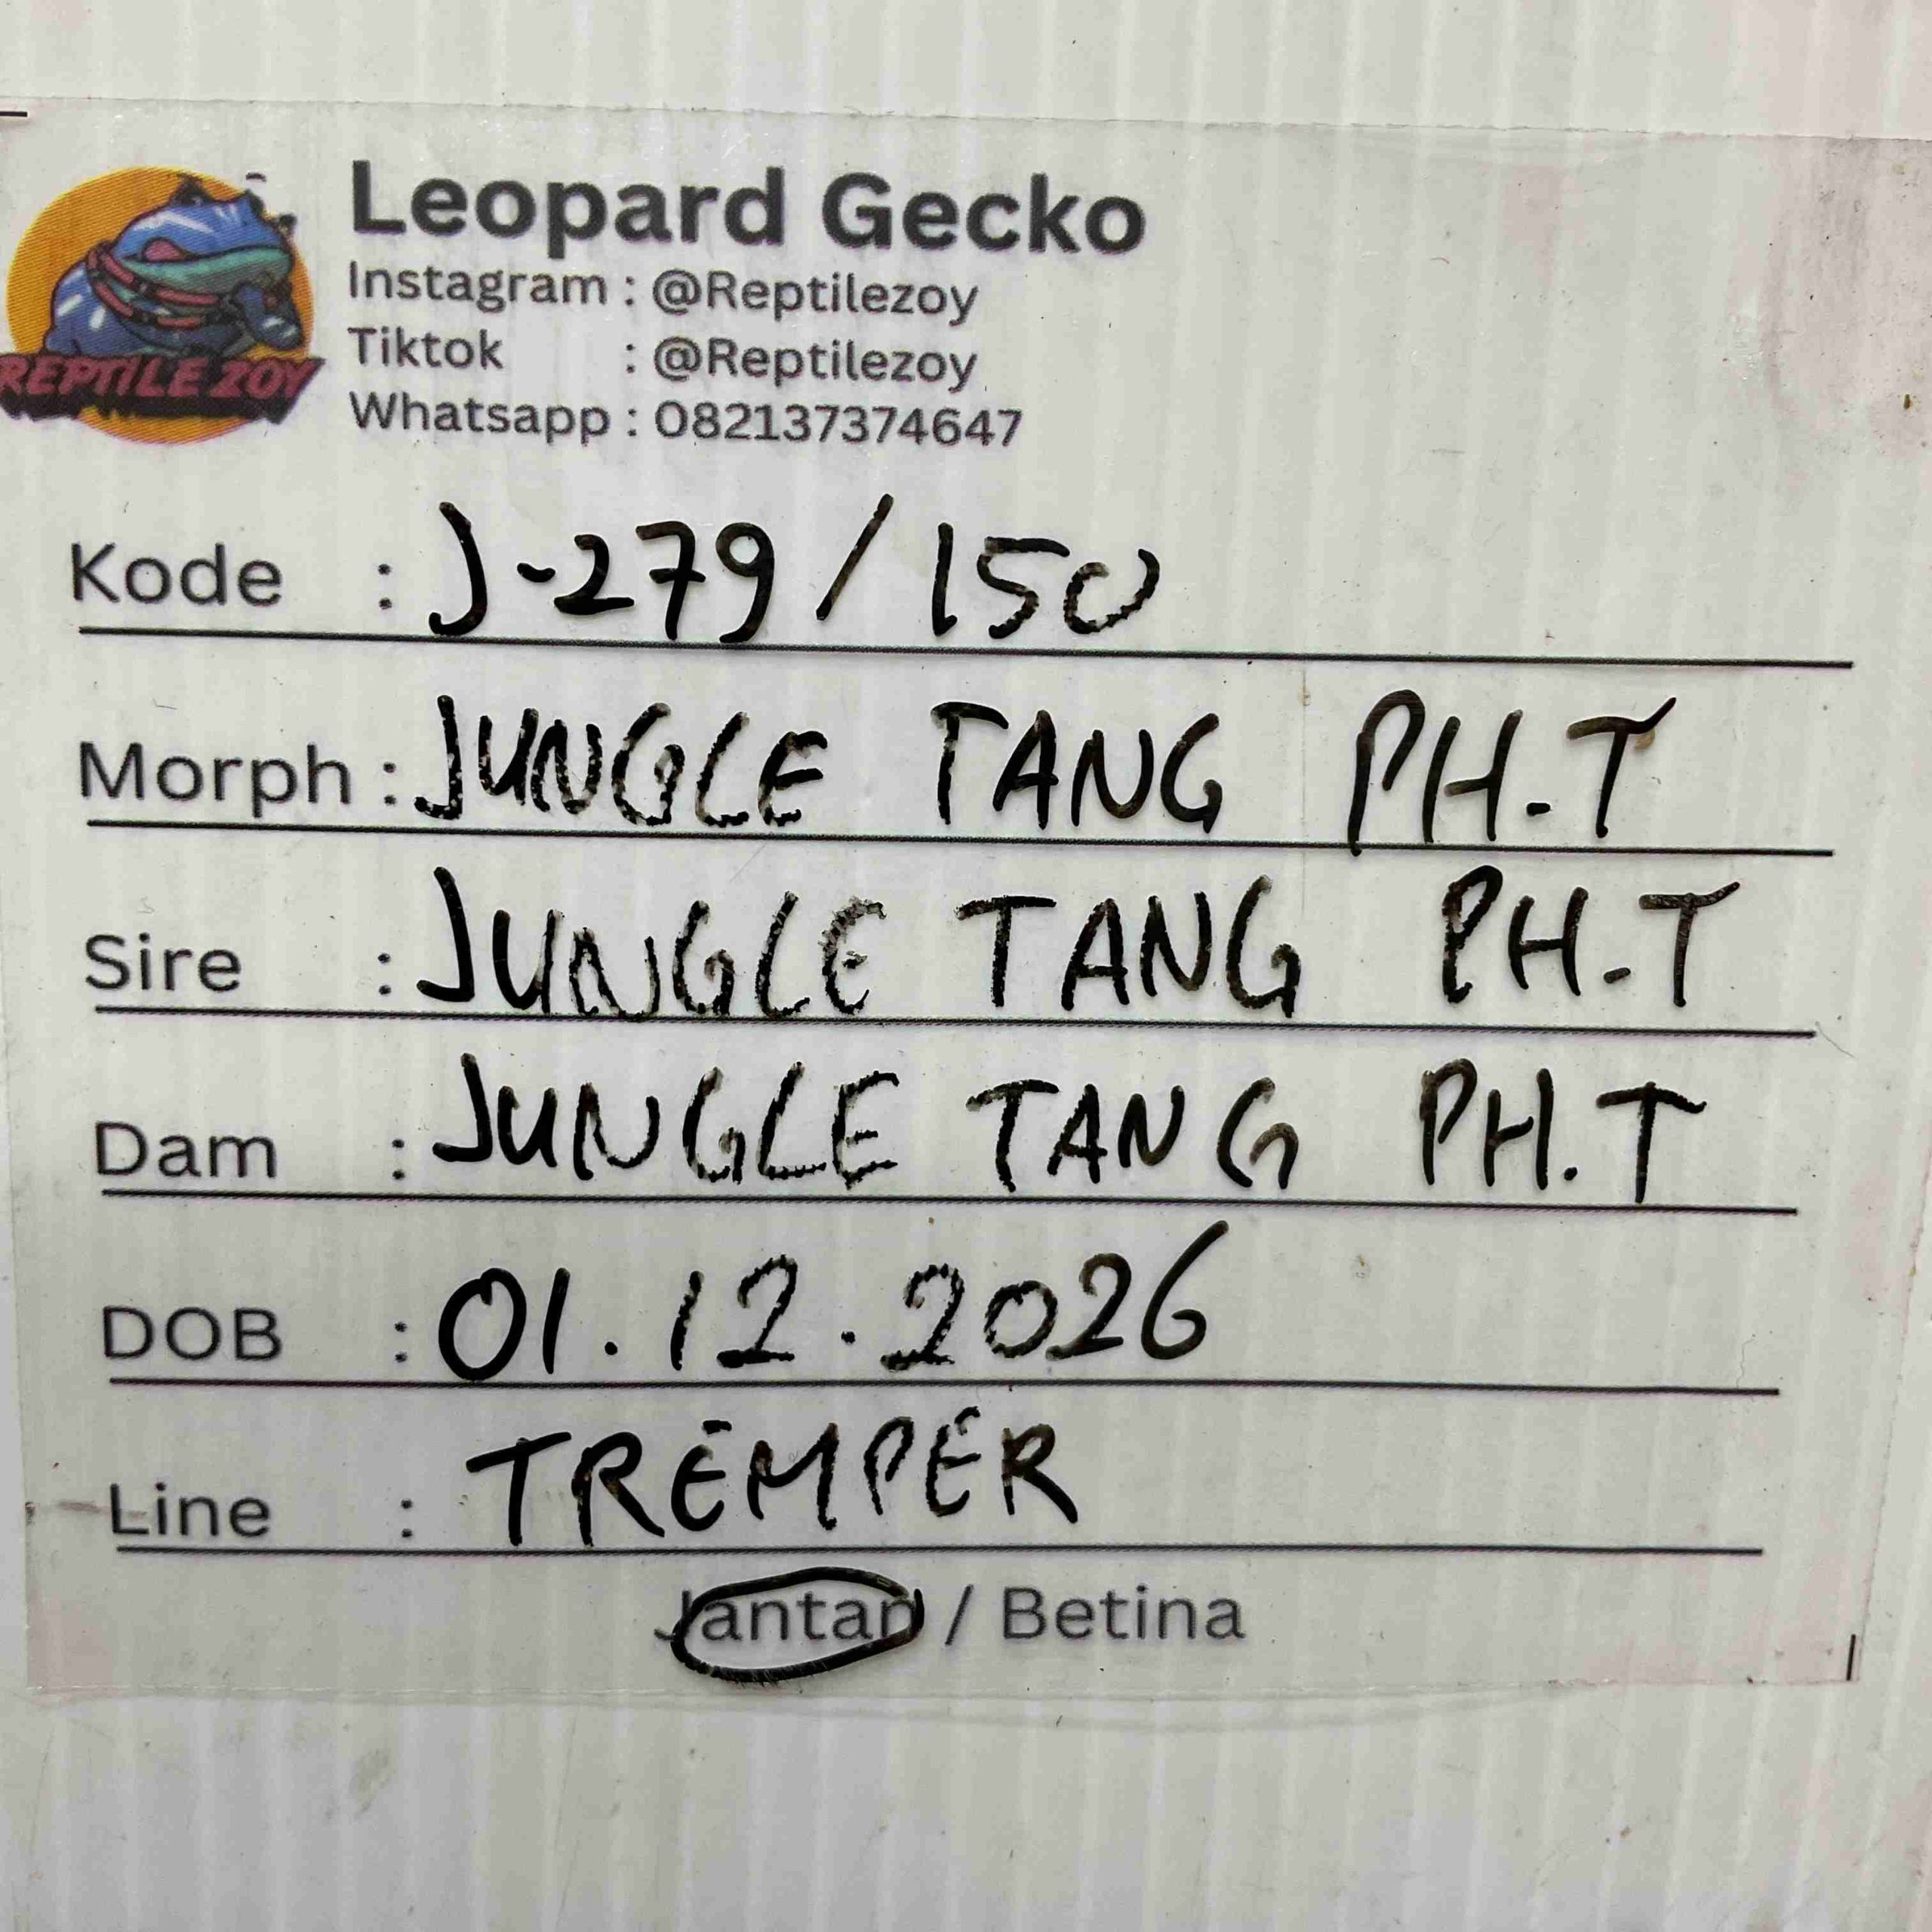 REPTILE ZOY
Leopard Gecko
Instagram : @Reptilezoy
Tiktok : @Reptilezoy
Whatsapp : 082137374647
Kode : J-279/150
Morph : JUNGLE TANG PH-T
Sire : JUNGLE TANG PH-T
Dam : JUNGLE TANG PH.T
DOB : 01.12.2026
Line : TREMPER
Jantan / Betina